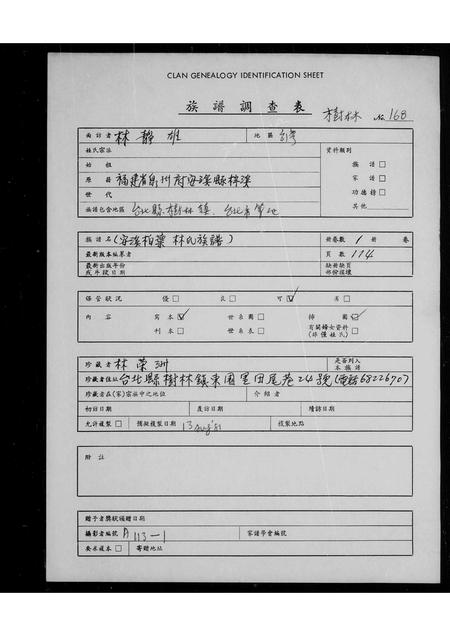 CLAN GENEALOGY IDENTIFICATION SHEET
族譜調查表 樹林 No. 168
面訪者 林靜雄 地區 台灣
姓氏宗法 資料類別
始祖 族譜 □
原籍 福建省泉州府安溪縣 家譜 □
世代 功德榜 □
族譜包含地區 台北縣樹林鎮、台北市等地 其他
族譜名 (安溪柏葉林氏族譜) 冊卷數 1 冊 卷
最新版本編纂者 頁數 114
最新出版年份 缺冊缺頁
或斥段日期 部份損壞
保管狀況 優 □ 良 □ 可 ☑ 劣 □
內容 寫本 ☑ 世系圖 □ 插圖 ☑
刊本 □ 世系表 □ 有關婦女資料 □
(非僅姓氏)
珍藏者 林榮洲 是否列入
本族譜
珍藏者住址 台北縣樹林鎮東園里田尾巷24號 (電話6822670)
珍藏者在(家)宗族中之地位 介紹者
初訪日期 度訪日期 續訪日期
允許複製 □ 預擬複製日期 13 Aug '81 複製地點
附註
贈予者獎狀頒贈日期
攝影者編號 A 113-1 家譜學會編號
要求複本 □ 寄贈地址